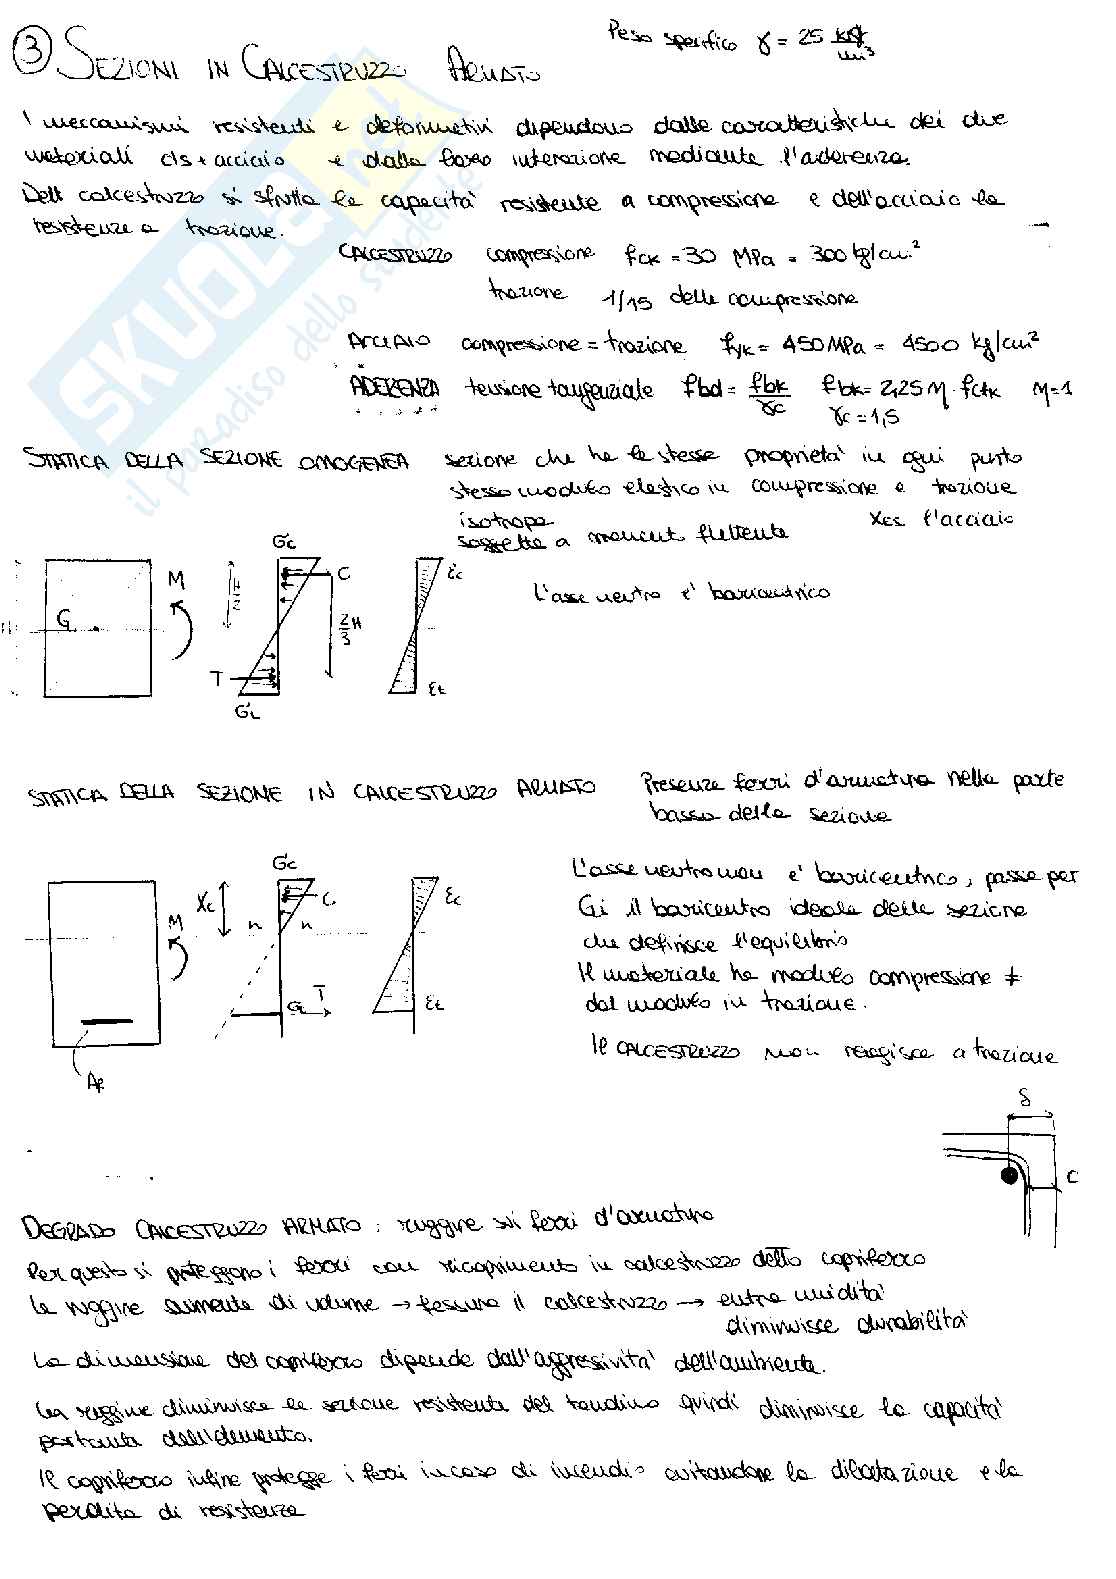 ③ SEZIONI IN CALCESTRUZZO ARMATO
Peso specifico γ = 25 kN/m³
I meccanismi resistenti e deformativi dipendono dalle caratteristiche dei due
materiali cls + acciaio e dalla loro interazione mediante l'aderenza.
Del calcestruzzo si sfrutta la capacità resistente a compressione e dell'acciaio la
resistenza a trazione.
CALCESTRUZZO compressione fck = 30 MPa = 300 kg/cm²
trazione 1/15 della compressione
ACCIAIO compressione = trazione fyk = 450 MPa = 4500 kg/cm²
ADERENZA tensione tangenziale fbd = fbk/γc fbk = 2,25 η · fctk η = 1
γc = 1,5
STATICA DELLA SEZIONE OMOGENEA sezione che ha le stesse proprietà in ogni punto
stesso modulo elastico in compressione e trazione
isotropa x es l'acciaio
soggetta a momento flettente
L'asse neutro è baricentrico
H
G
M
H/2
σc
C
2/3 H
T
σt
εc
εt
STATICA DELLA SEZIONE IN CALCESTRUZZO ARMATO Presenza ferri d'armatura nella parte
bassa della sezione
L'asse neutro non è baricentrico, passa per
Gi il baricentro ideale della sezione
che definisce l'equilibrio
Il materiale ha modulo compressione ≠
dal modulo in trazione.
Il CALCESTRUZZO non reagisce a trazione
M
Af
xc
σc
C
n n
T
εc
εt
δ
c
DEGRADO CALCESTRUZZO ARMATO: ruggine sui ferri d'armatura
Per questo si proteggono i ferri con ricoprimento in calcestruzzo detto copriferro
La ruggine aumenta di volume → fessura il calcestruzzo → entra umidità
diminuisce durabilità
La dimensione del copriferro dipende dall'aggressività dell'ambiente.
La ruggine diminuisce la sezione resistente del tondino quindi diminuisce la capacità
portante dell'elemento.
Il copriferro infine protegge i ferri in caso di incendio evitandone la dilatazione e la
perdita di resistenza
SKUOLA.net
il paradiso dello studente